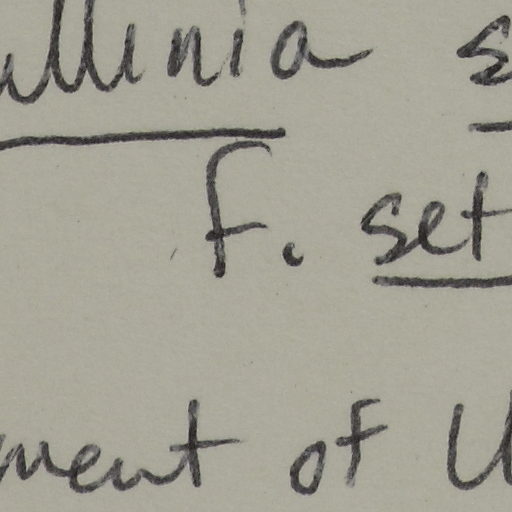 ullinia s
f. set
ment of U